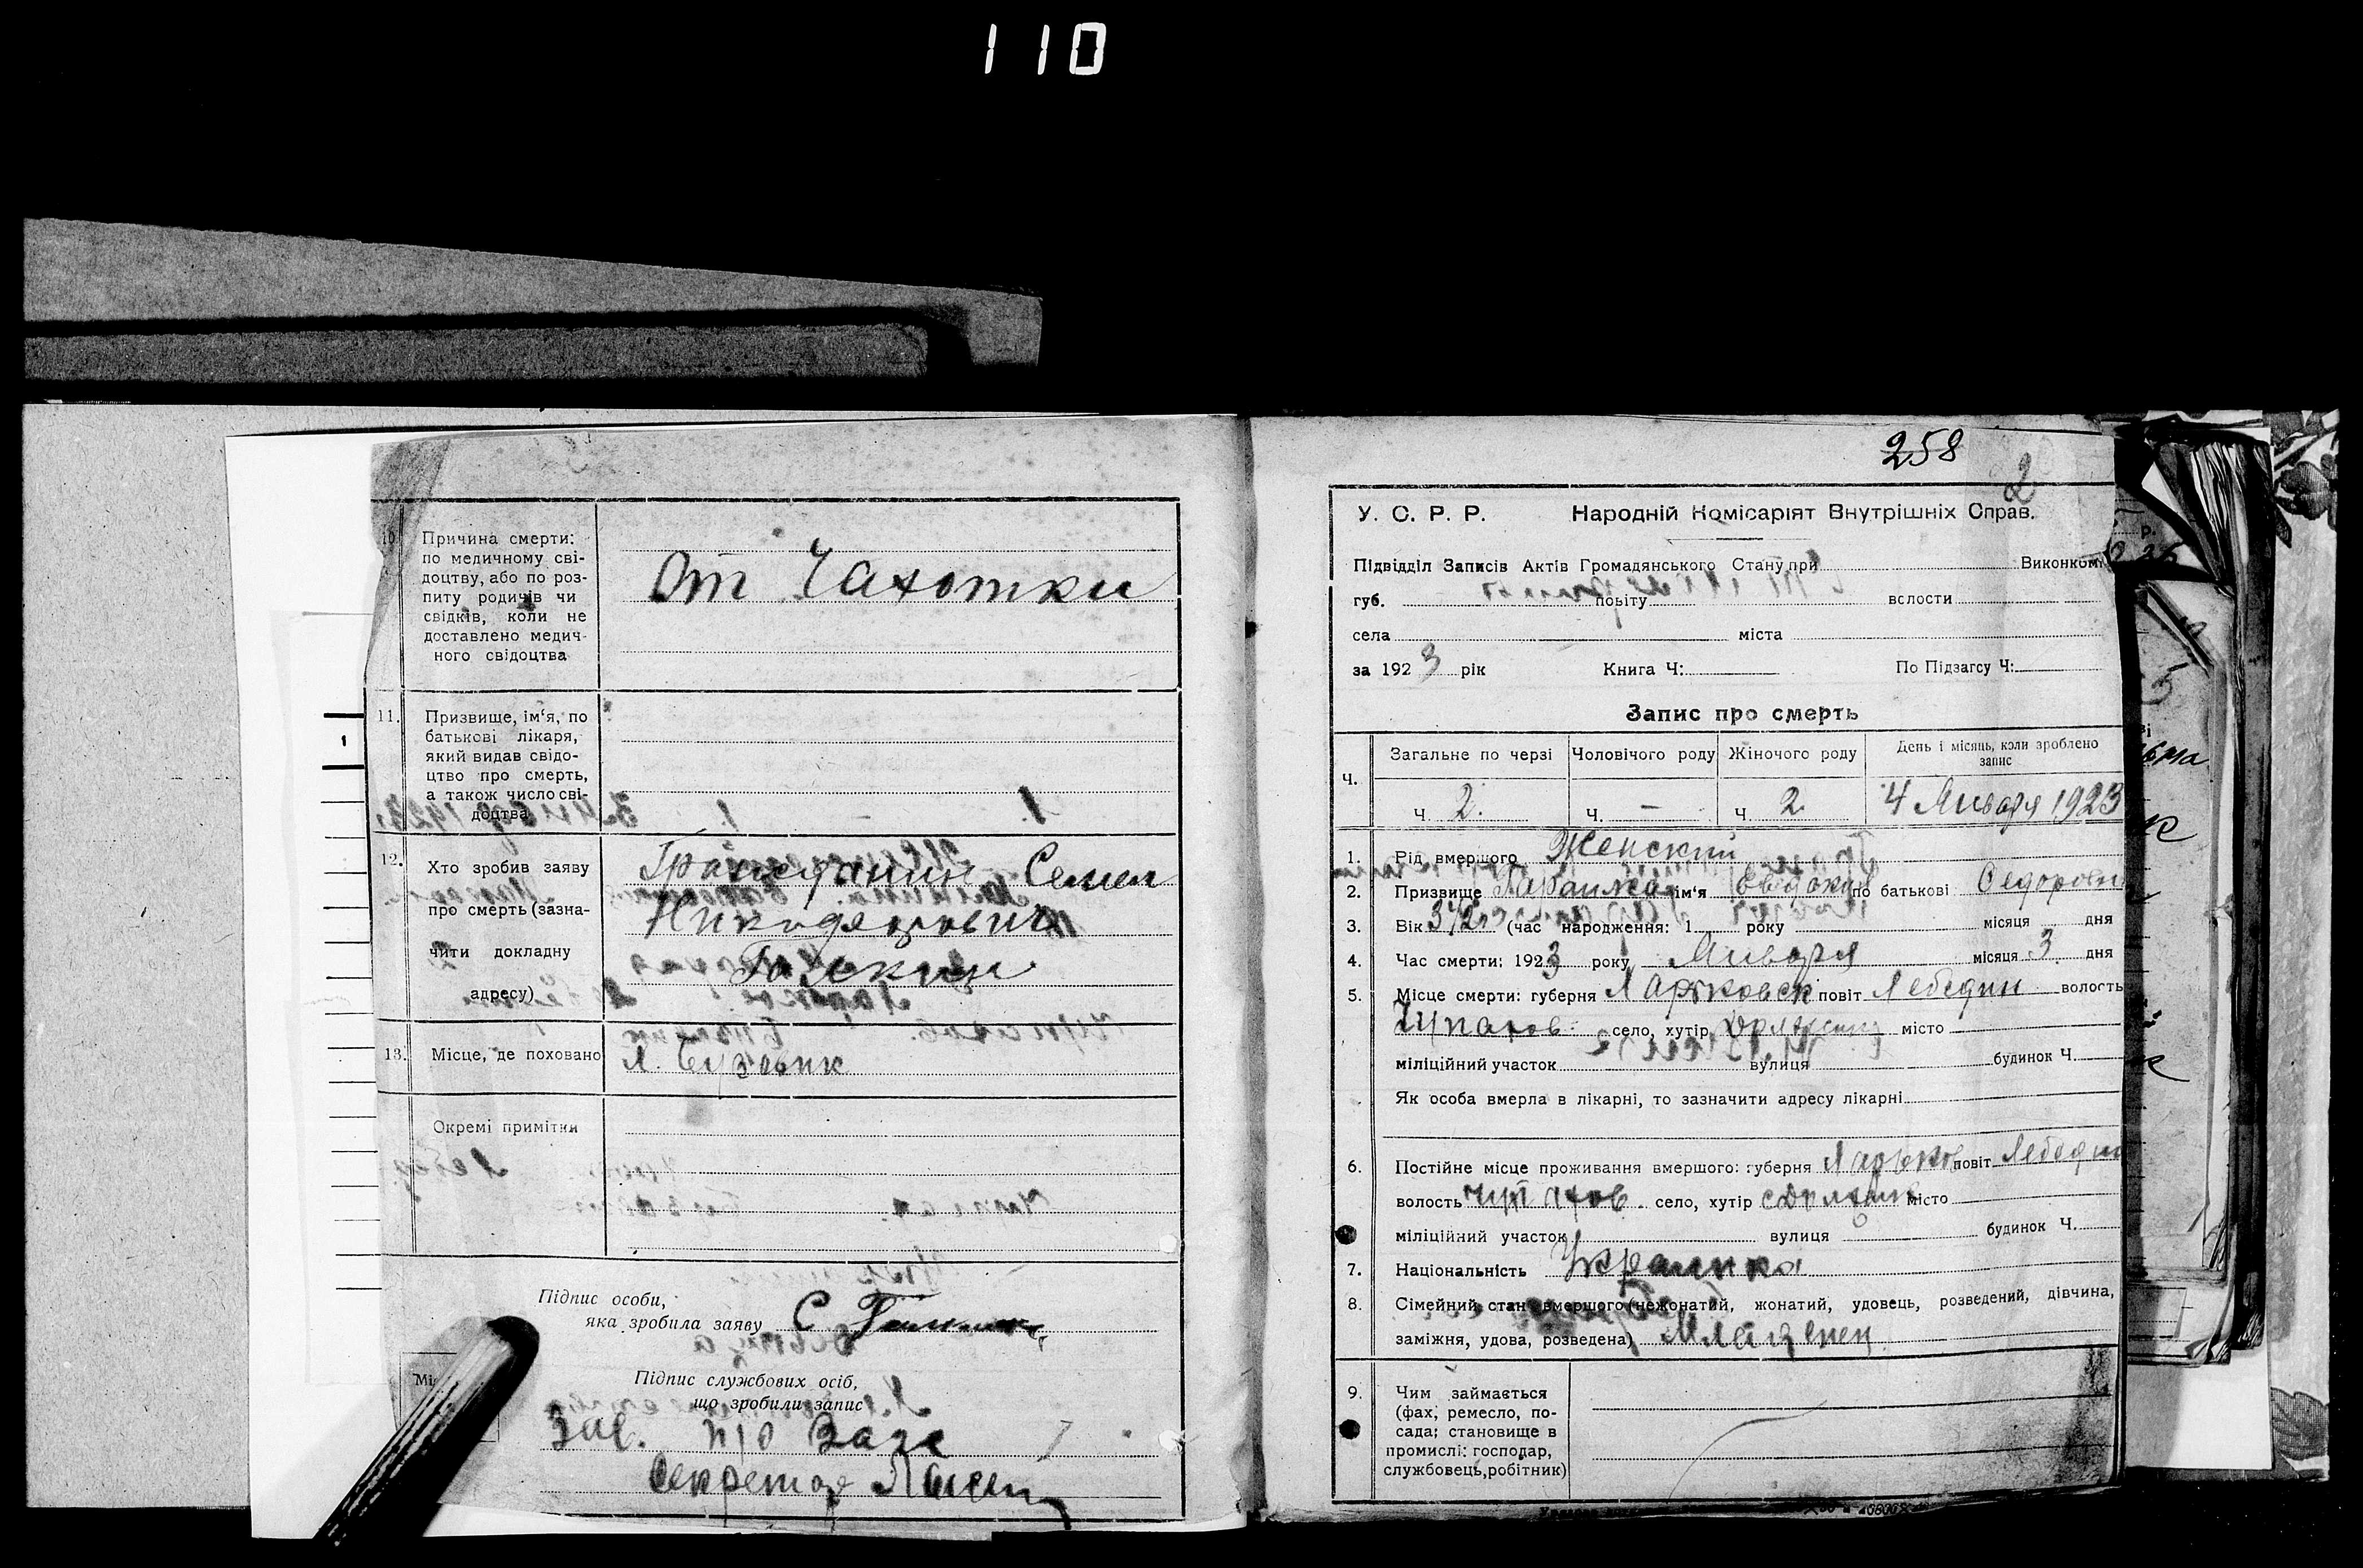 110
10. Причина смерти:
по медичному сві-
доцтву, або по роз-
питу родичів чи
свідків, коли не
доставлено медич-
ного свідоцтва
От Чахотки
11. Призвище, ім‘я, по
батькові лікаря,
який видав свідо-
цтво про смерть,
а також число сві-
доцтва
12. Хто зробив заяву
про смерть (зазна-
чити докладну
адресу)
Гражданин Семен
Никодимович
13. Місце, де поховано
Окремі примітки
Підпис особи,
яка зробила заяву С
Підпис службових осіб,
що зробили запис
Зав. п/о Загс
Секретар
258
2
У. С. Р. Р. Народній Комісаріят Внутрішніх Справ.
Підвідділ Записів Актів Громадянського Стану при Виконком
губ. повіту волости
села міста
за 1923 рік Книга Ч: По Підзагсу Ч:
Запис про смерть
Ч. Загальне по черзі Чоловічого роду Жіночого роду День і місяць, коли зроблено
запис
Ч. 2. Ч. — Ч. 2 4 Января 1923
1. Рід вмершого Женский
2. Призвище ім‘я Евдокия по батькові Федоровн
3. Вік (час народження: 1 року місяця дня
4. Час смерти: 1923 року Января місяця 3 дня
5. Місце смерти: губерня Харьковск повіт Лебедин волость
Чупахов село, хутір місто
міліційний участок вулиця будинок Ч.
Як особа вмерла в лікарні, то зазначити адресу лікарні
6. Постійне місце проживання вмершого: губерня Харьков повіт Лебедин
волость Чупахов. село, хутір місто
міліційний участок вулиця будинок Ч.
7. Національність Украинка
8. Сімейний стан вмершого (нежонатий, жонатий, удовець, розведений, дівчина,
заміжня, удова, розведена) Младенец
9. Чим займається
(фах, ремесло, по-
сада; становище в
промислі: господар,
службовець, робітник)